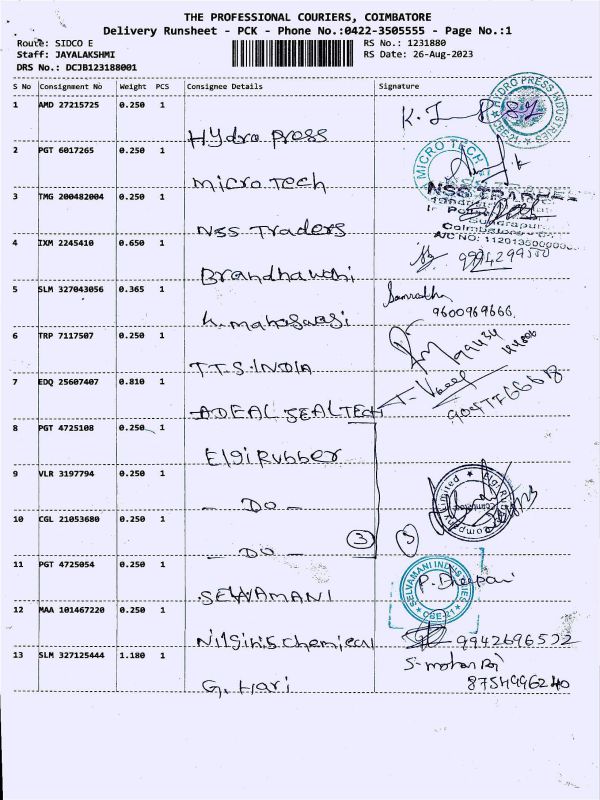 THE PROFESSIONAL COURIERS, COIMBATORE
Delivery Runsheet - PCK - Phone No.:0422-3505555 - Page No.:1
Route: SIDCO E RS No.: 1231880
Staff: JAYALAKSHMI RS Date: 26-Aug-2023
DRS No.: DCJB123188001
S No Consignment No Weight PCS Consignee Details Signature
1 AMD 27215725 0.250 1
Hydro press
HYDRO PRESS INDUSTRIES
CBE-21
2 PGT 6017265 0.250 1
micro.Tech
MICRO TECH
3 TMG 200482004 0.250 1
NSS Traders
4 IXM 2245410 0.650 1
5 SLM 327043056 0.365 1
9600969666
6 TRP 7117507 0.250 1
T.T.S.INDIA
99434
7 EDQ 25607407 0.810 1
ADEAL SEALTECH
8 PGT 4725108 0.250 1
Elgi Rubber
9 VLR 3197794 0.250 1
- Do -
10 CGL 21053680 0.250 1
- Do - 3
11 PGT 4725054 0.250 1
SELVAMANI
SELVAMANI INDUSTRIES
CBE-21
12 MAA 101467220 0.250 1
Nilgiris Chemical 9942696522
13 SLM 327125444 1.180 1
G. Hari
8754996240